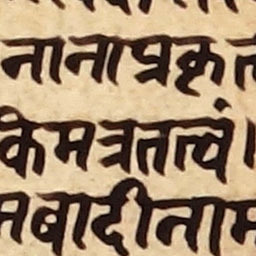 नानाप्रकृत
किमत्रतत्त्वं।
मबादीनाम